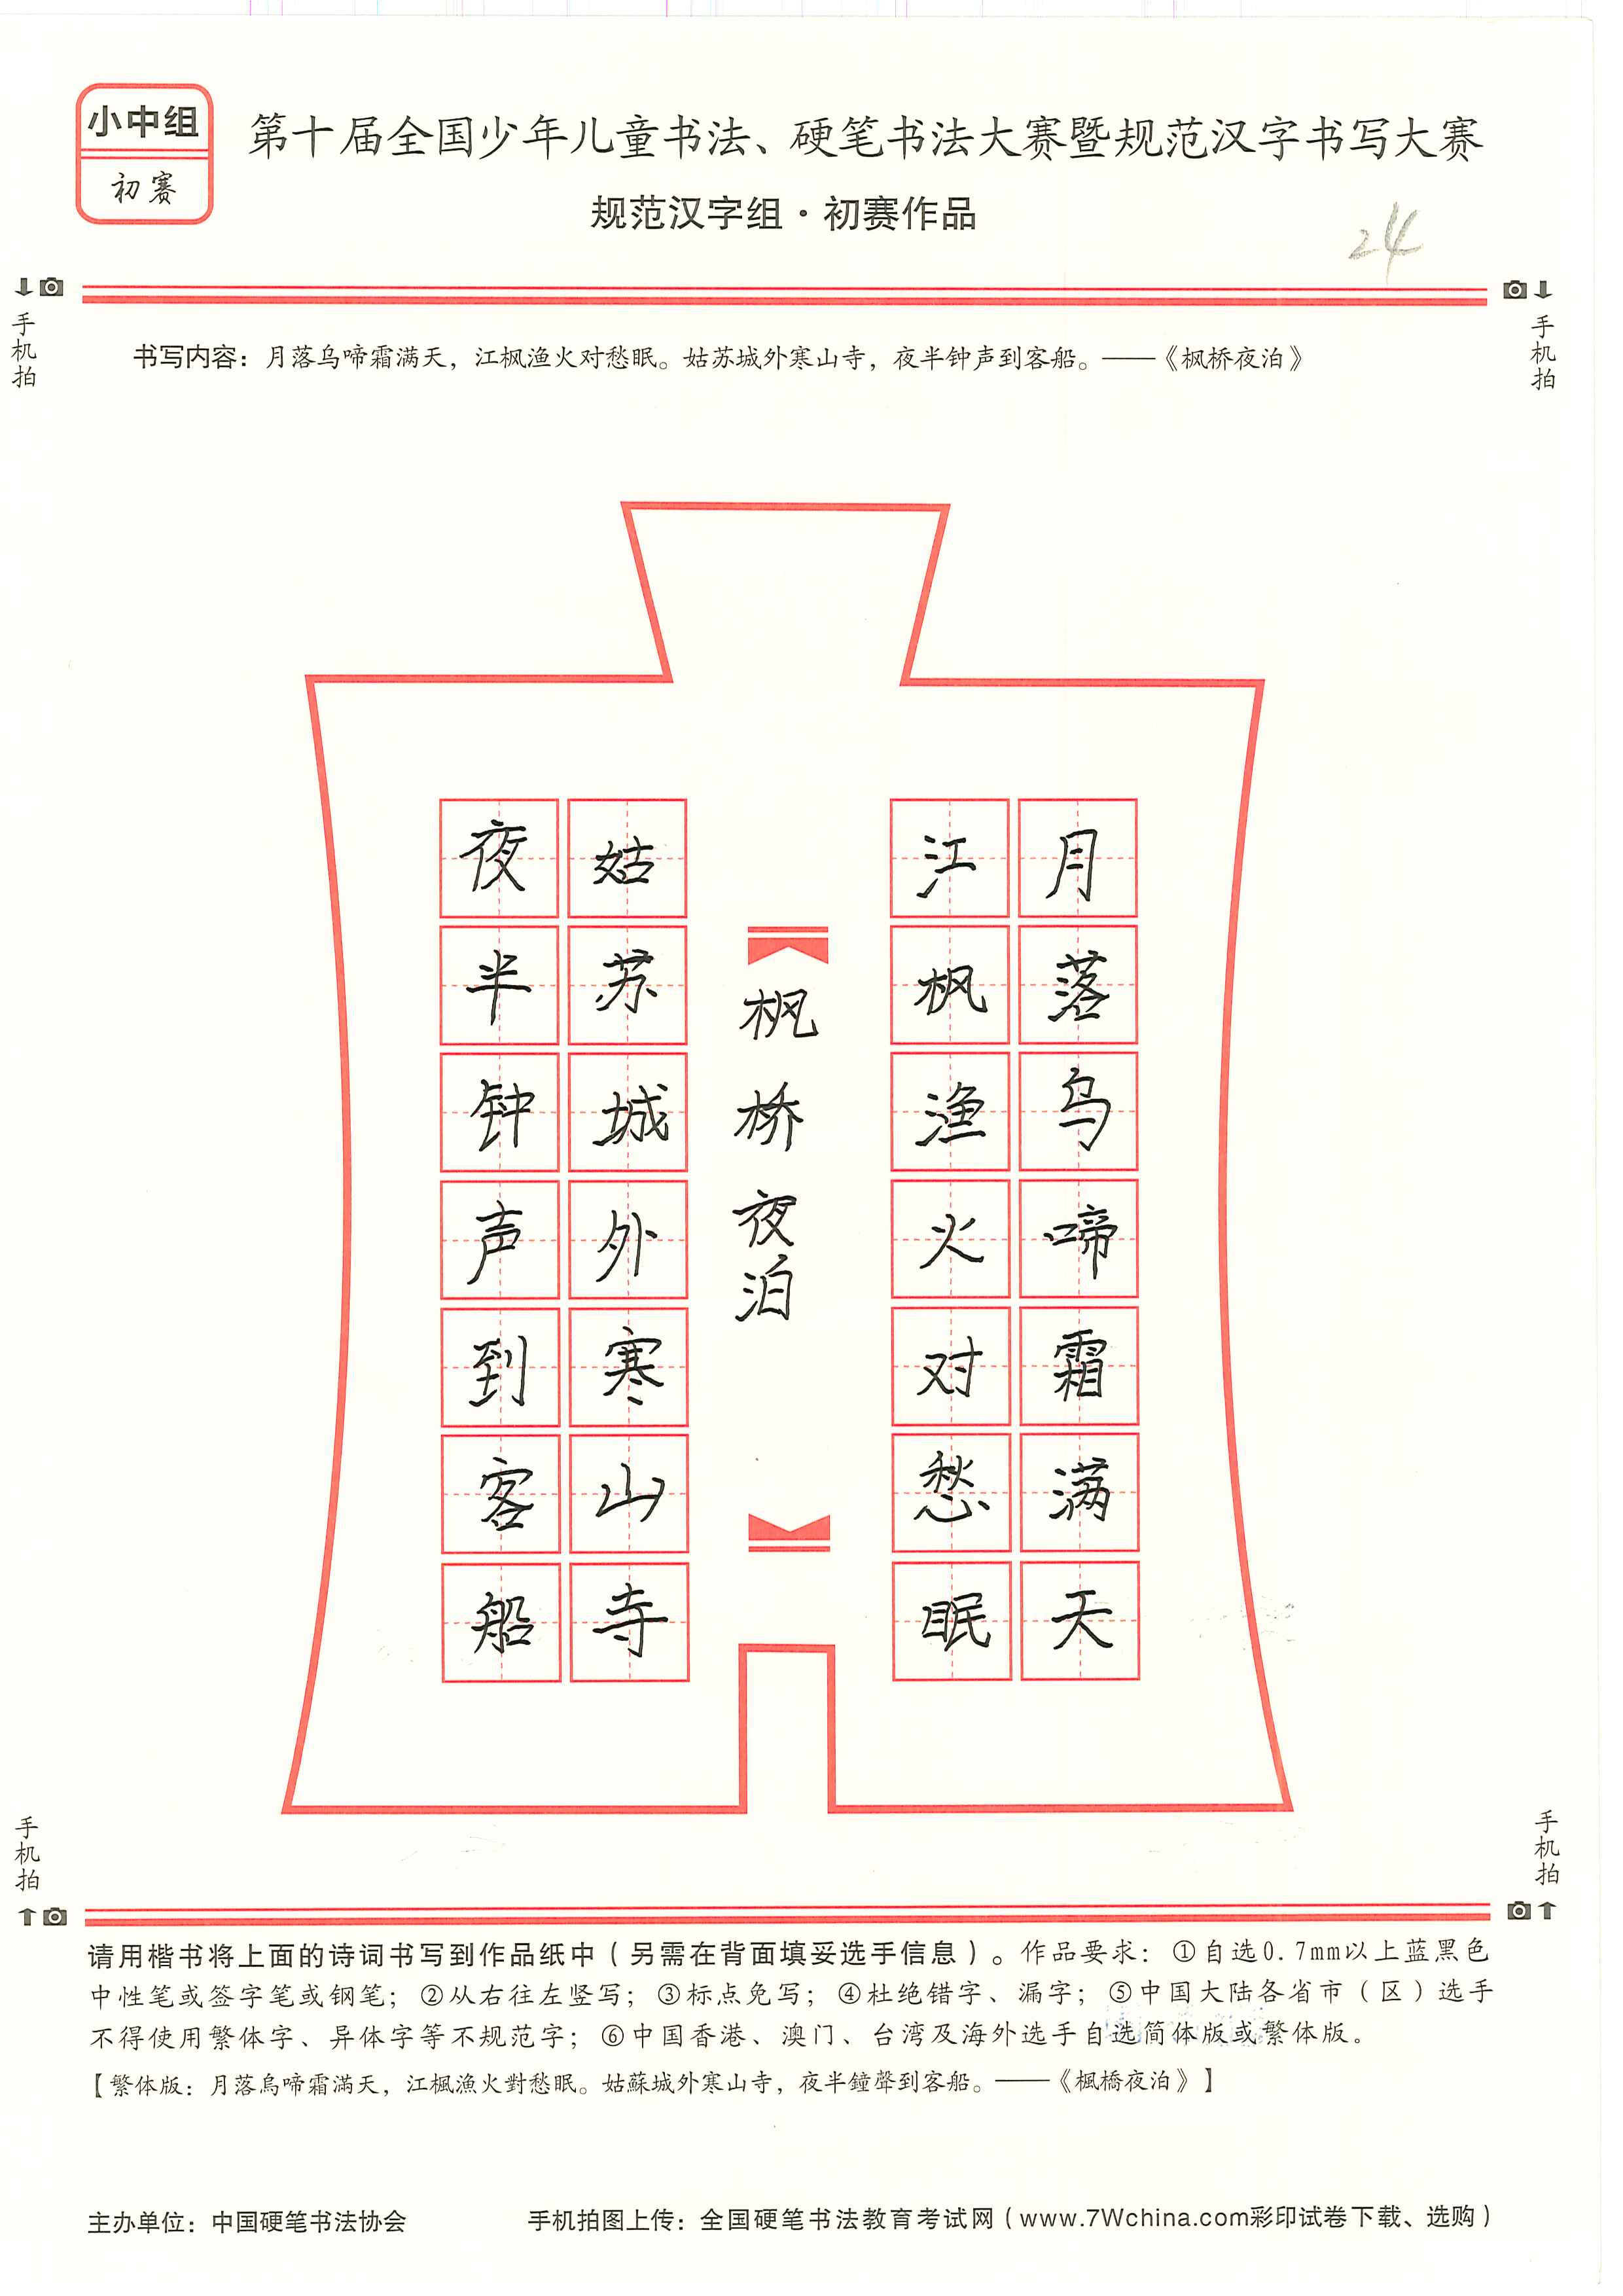 小中组
初赛
第十届全国少年儿童书法、硬笔书法大赛暨规范汉字书写大赛
规范汉字组·初赛作品
24
手机拍
手机拍
书写内容：月落乌啼霜满天，江枫渔火对愁眠。姑苏城外寒山寺，夜半钟声到客船。——《枫桥夜泊》
月落乌啼霜满天
江枫渔火对愁眠
枫桥夜泊
姑苏城外寒山寺
夜半钟声到客船
手机拍
手机拍
请用楷书将上面的诗词书写到作品纸中（另需在背面填妥选手信息）。作品要求：①自选0.7mm以上蓝黑色
中性笔或签字笔或钢笔；②从右往左竖写；③标点免写；④杜绝错字、漏字；⑤中国大陆各省市（区）选手
不得使用繁体字、异体字等不规范字；⑥中国香港、澳门、台湾及海外选手自选简体版或繁体版。
【繁体版：月落烏啼霜滿天，江楓漁火對愁眠。姑蘇城外寒山寺，夜半鐘聲到客船。——《楓橋夜泊》】
主办单位：中国硬笔书法协会
手机拍图上传：全国硬笔书法教育考试网（www.7Wchina.com彩印试卷下载、选购）